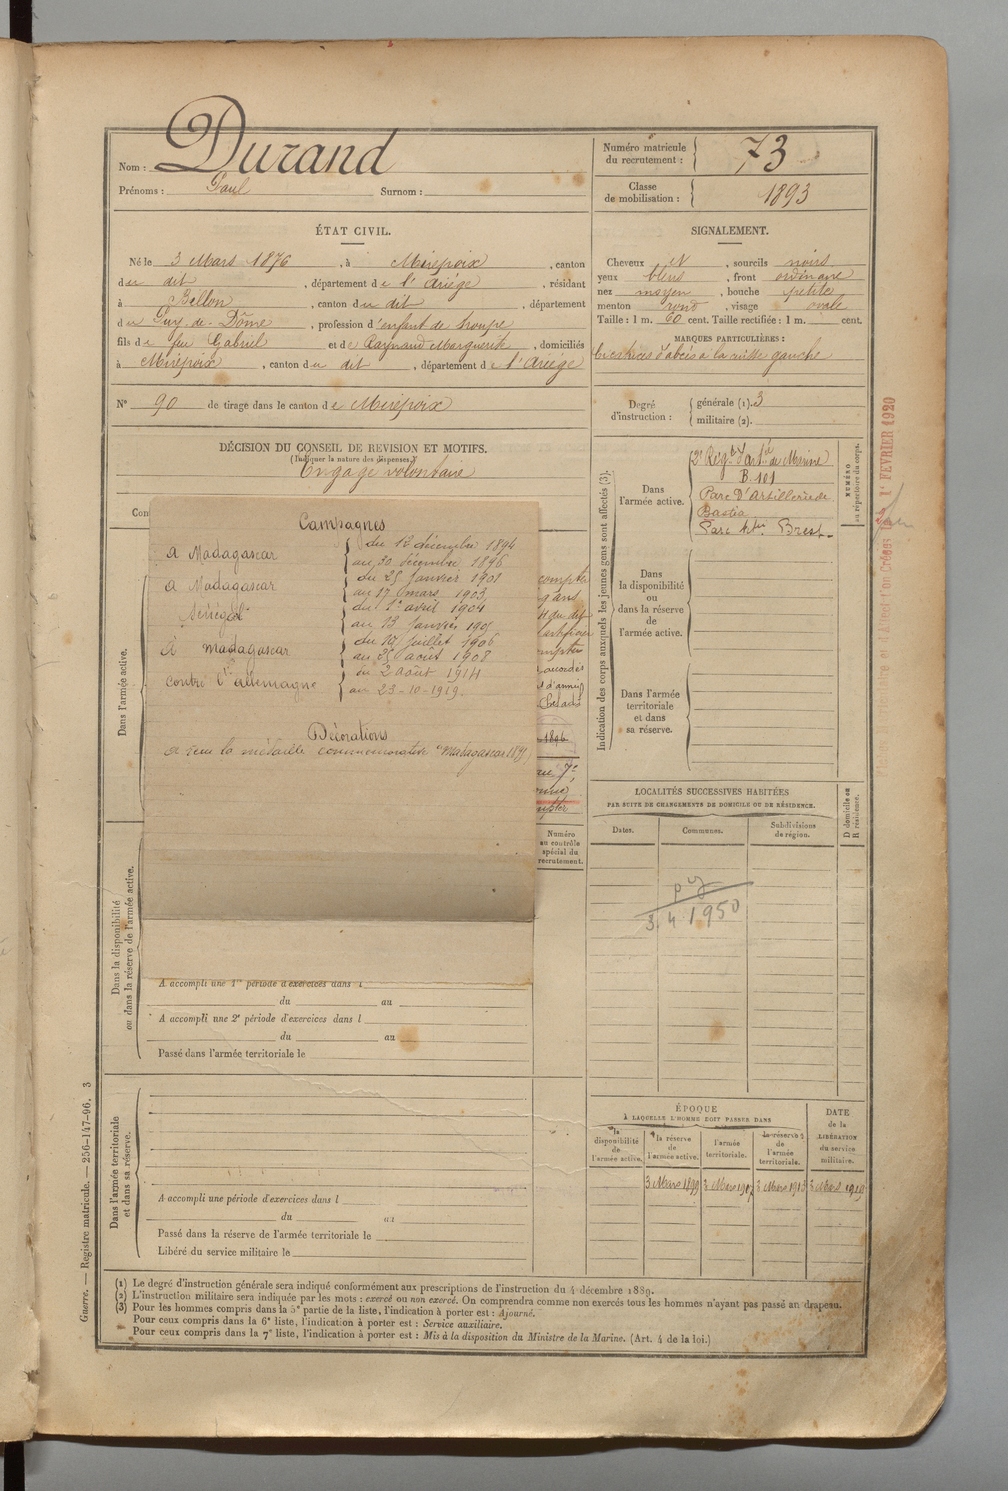 Nom : Durand
Prénoms : Paul Surnom :
Numéro matricule
du recrutement : 73
Classe
de mobilisation : 1893
ÉTAT CIVIL.
Né le 3 Mars 1876, à Mirepoix, canton
du dit, département de l'Ariège, résidant
à Bellon, canton du dit, département
du Puy-de-Dôme, profession d'enfant de troupe
fils de feu Gabriel et de Raynaud Marguerite, domiciliés
à Mirepoix, canton du dit, département de l'Ariège
N° 90 de tirage dans le canton de Mirepoix
SIGNALEMENT.
Cheveux N, sourcils noirs
yeux bleus, front ordinaire
nez moyen, bouche petite
menton rond, visage ovale
Taille : 1 m. 60 cent. Taille rectifiée : 1 m. cent.
MARQUES PARTICULIÈRES :
Cicatrices d'abcès à la cuisse gauche
Degré
d'instruction :
générale (1). 3
militaire (2).
DÉCISION DU CONSEIL DE REVISION ET MOTIFS.
(Indiquer la nature des dispenses.)
Engagé volontaire
Con
Campagnes
à Madagascar
du 12 décembre 1894
au 30 décembre 1896
à Madagascar
du 25 Janvier 1901
au 17 mars 1903
Sénégal
du 1er avril 1904
au 13 Janvier 1905
à Madagascar
du 10 Juillet 1906
au 25 août 1908
contre l'allemagne
du 2 août 1914
au 23-10-1919.
Décorations
a reçu la médaille commémorative Madagascar 1895
compter
1896
au 7e
compter
Dans l'armée active.
Numéro
au contrôle
spécial du
recrutement.
Dans la disponibilité
ou dans la réserve de l'armée active.
A accompli une 1re période d'exercices dans l
du au
A accompli une 2e période d'exercices dans l
du au
Passé dans l'armée territoriale le
Dans l'armée territoriale
et dans sa réserve.
A accompli une période d'exercices dans l
du au
Passé dans la réserve de l'armée territoriale le
Libéré du service militaire le
Indication des corps auxquels les jeunes gens sont affectés (3).
Dans
l'armée active.
2e Régt d'artie de Marine
B. 101
Parc D'artillerie de
Bastia
Parc Artie Brest
NUMÉRO
au répertoire du corps.
Dans
la disponibilité
ou
dans la réserve
de
l'armée active.
Dans l'armée
territoriale
et dans
sa réserve.
1er FEVRIER 1920
LOCALITÉS SUCCESSIVES HABITÉES
PAR SUITE DE CHANGEMENTS DE DOMICILE OU DE RÉSIDENCE.
Dates. Communes. Subdivisions
de région.
D domicile ou
R résidence.
3.4 1950
ÉPOQUE
À LAQUELLE L'HOMME DOIT PASSER DANS
la
disponibilité
de
l'armée active.
la réserve
de
l'armée active.
l'armée
territoriale.
la réserve
de
l'armée
territoriale.
DATE
de la
LIBÉRATION
du service
militaire.
3 Mars 1899 3 Mars 1907 3 Mars 1913 3 Mars 1919
(1) Le degré d'instruction générale sera indiqué conformément aux prescriptions de l'instruction du 4 décembre 1889.
(2) L'instruction militaire sera indiquée par les mots : exercé ou non exercé. On comprendra comme non exercés tous les hommes n'ayant pas passé au drapeau.
(3) Pour les hommes compris dans la 5e partie de la liste, l'indication à porter est : Ajourné.
Pour ceux compris dans la 6e liste, l'indication à porter est : Service auxiliaire.
Pour ceux compris dans la 7e liste, l'indication à porter est : Mis à la disposition du Ministre de la Marine. (Art. 4 de la loi.)
Guerre. — Registre matricule. — 256-147-96. 3